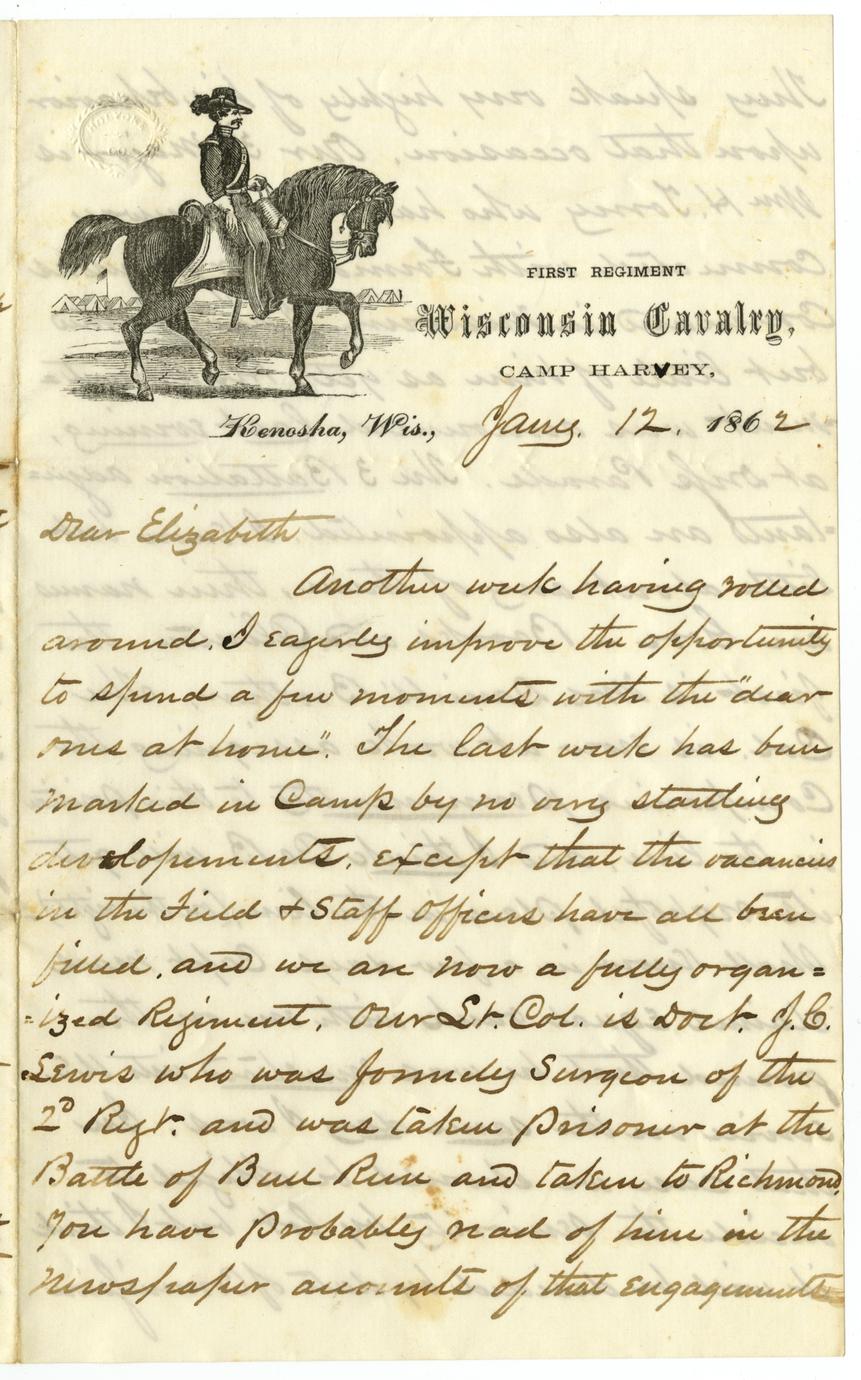 FIRST REGIMENT
Wisconsin Cavalry,
CAMP HARVEY,
Kenosha, Wis., Jany. 12. 1862
Dear Elizabeth
Another week having rolled
around. I eagerly improve the opportunity
to spend a few moments with the "dear
ones at home". The last week has been
marked in Camp by no very startling
developements. except that the vacancies
in the Field & Staff Officers have all been
filled, and we are now a fully organ=
=ized Regiment. Our Lt. Col. is Doct. J.C.
Lewis who was formely Surgeon of the
2D Regt. and was taken Prisoner at the
Battle of Bull Run and taken to Richmond.
You have Probably read of him in the
Newspaper accounts of that engagements